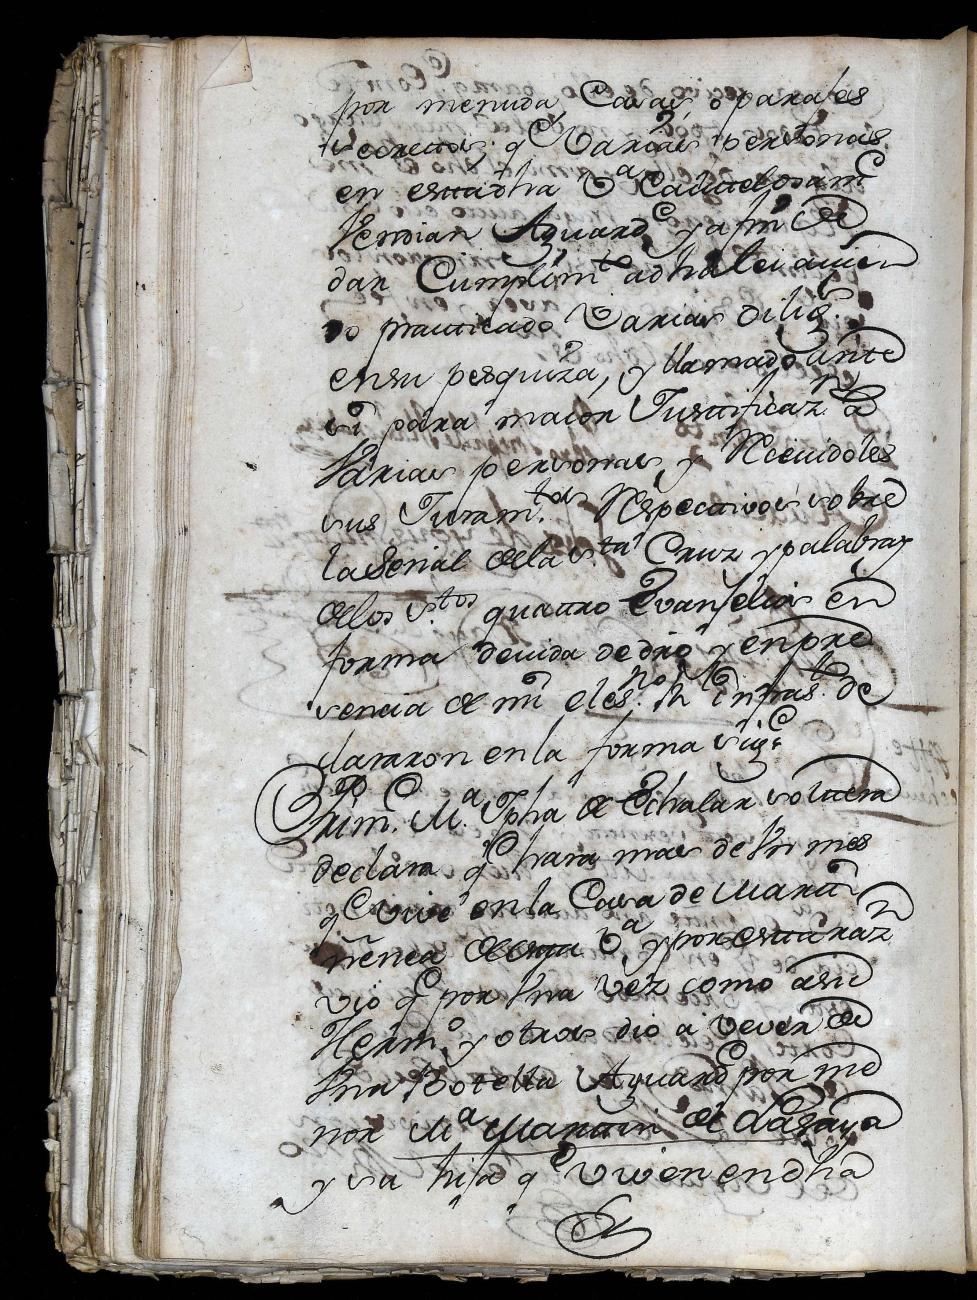 por menuda, Casas o parajes
secretos, q̃ Varias personas
en esta dha Va Cautelosamte
Vendian Aguardte, y a fin de
dar Cumplimto a dha Lei avien
do practicado Varias dilig.s
en su pesquiza, y llamado ante
si para maior Justificazn a
Varias personas, y Recividoles
sus Juramtos Respectivos sobre
la Señal de la Sta Cruz y palabras
de los Stos quattro Evangelios en
forma devida de dro y en pre
sencia de mi el esno R infras.to de
clararon en la forma sigte
Primte Ma Jpha de Echalar soltera
declara q̃ hara mas de Vn mes
q̃ vive en la Casa de Marti
ñenea de esta Va, y por esta razn
vio q̃ por Vna vez como a su
Hermo, y otros dio a vever de
Vna Botella Aguardte por me
nor Ma Martin de
y su hija q̃ viven en dha